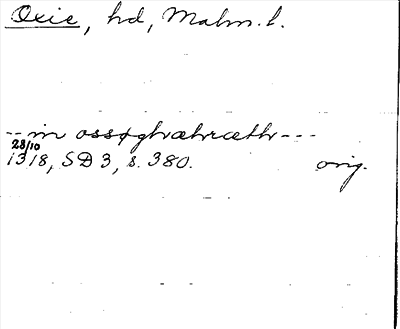 Oxie, hd, Malm. l.
--- in ossøghæhræth ---
28/10
1318, SD 3, s. 380. orig.